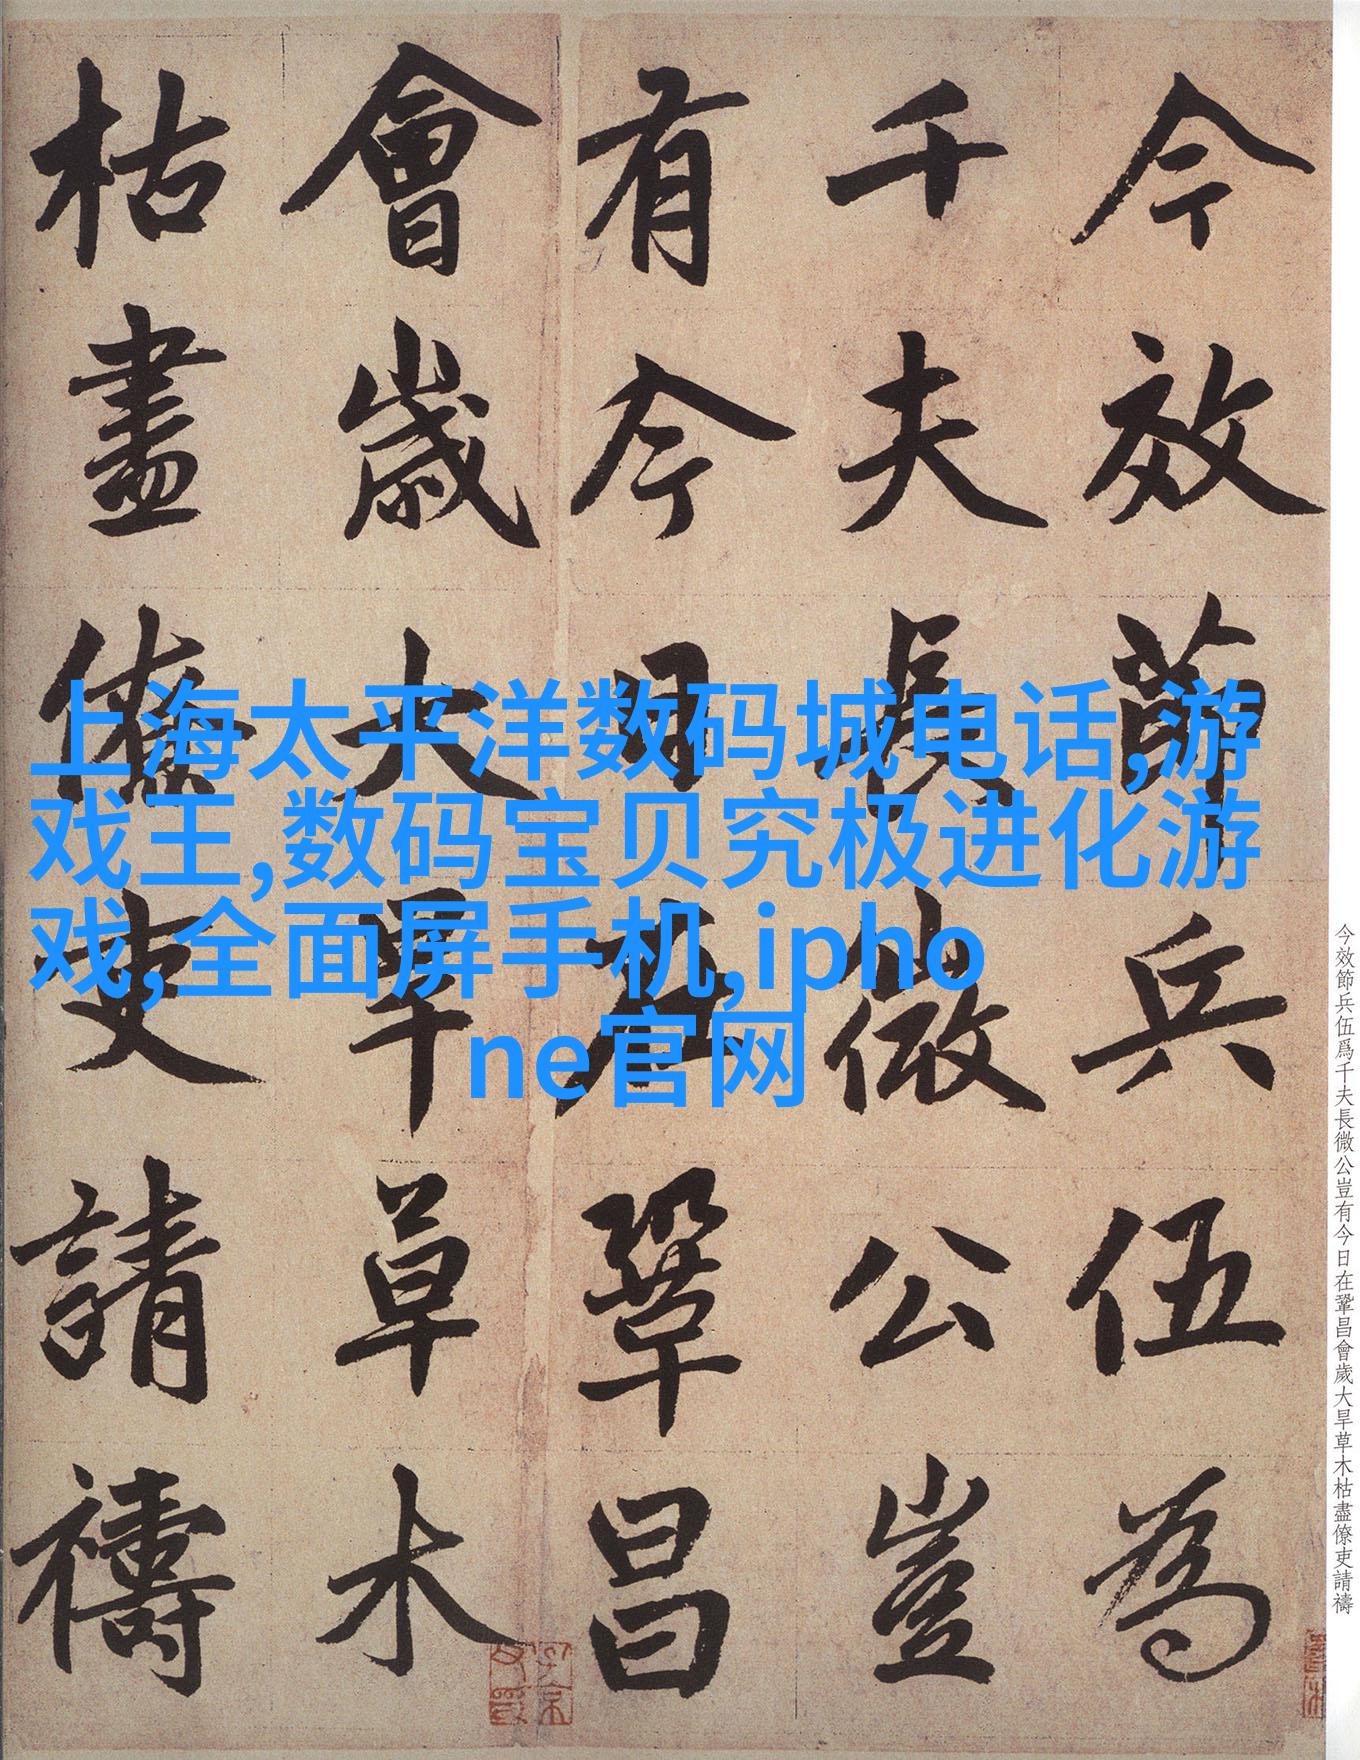 今效節兵伍為
千夫長微公豈
有今日在鞏昌
會歲大旱草木
枯盡僚吏請禱
上海太平洋数码城电话,游
戏王,数码宝贝究极进化游
戏,全面屏手机,ipho
ne官网
今效節兵伍爲千夫長微公豈有今日在鞏昌會歲大旱草木枯盡僚吏請禱